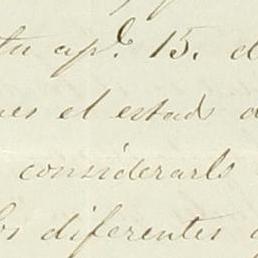 tu apl. 15. d
ues el estado d
considerarlo
los diferentes q